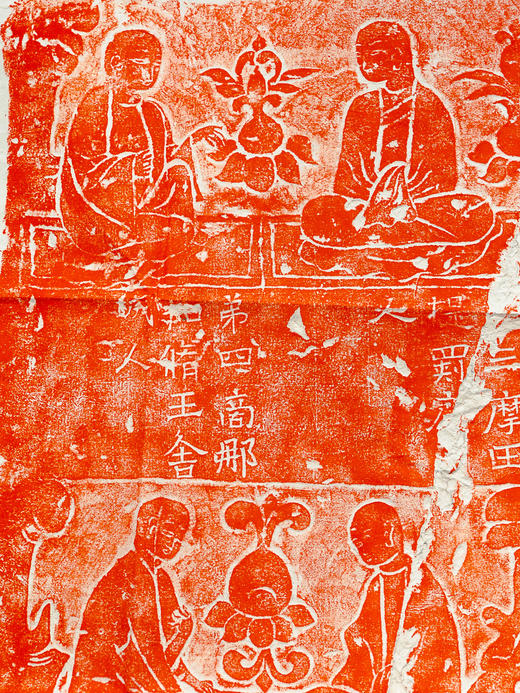 三摩田
提罽賓
人
第四商那
和脩王舍
城人